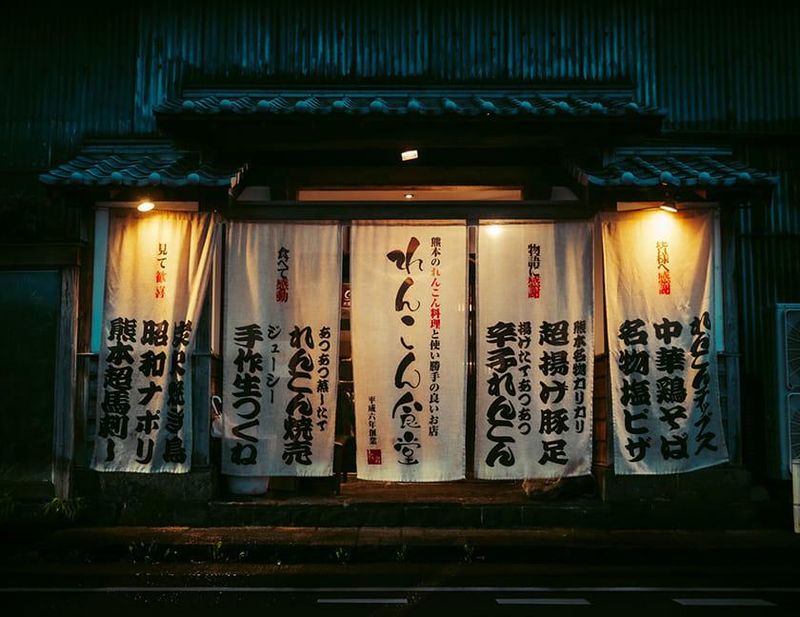 皆様へ感謝
れんこんチップス
中華鶏そば
名物塩ピザ
物語に感謝
熊本名物カリカリ
超揚げ豚足
揚げたてあつあつ
辛子れんこん
熊本のれんこん料理と使い勝手の良いお店
れんこん食堂
平成六年創業
食べて感動
あつあつ蒸したて
れんこん焼売
ジューシー
手作生つくね
見て歓喜
炭火焼き鳥
昭和ナポリ
熊本超馬刺し